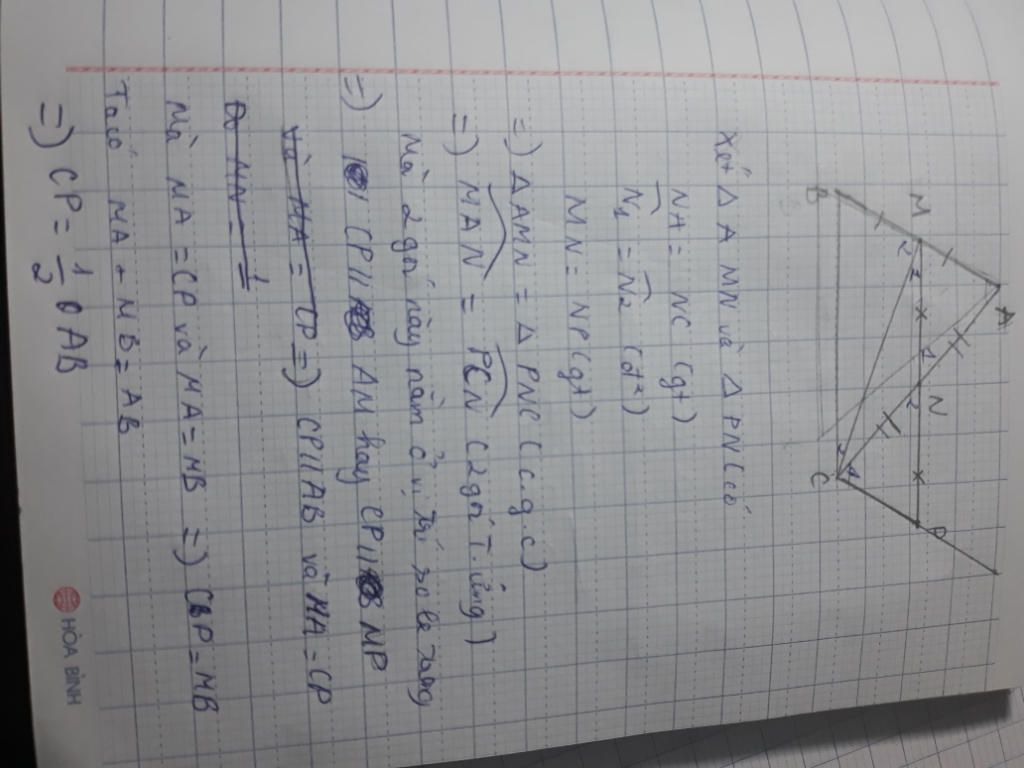 A
M
1
1
N
2
2
P
B
2
1
C
Xét Δ AMN và Δ PNC có
NA = NC (gt)
N1 = N2 (đ²)
MN = NP (gt)
=) Δ AMN = Δ PNC (c.g.c)
=) MAN = PCN (2 góc T. ứng)
Mà 2 góc này nằm ở vị trí so le trong
=) CP // AM hay CP // NP
Và MA = CP =) CP // AB và MA = CP
Do MA = 1
Mà MA = CP và MA = MB =) CP = MB
Ta có MA + MB = AB
=) CP = 1/2 AB
HÒA BÌNH